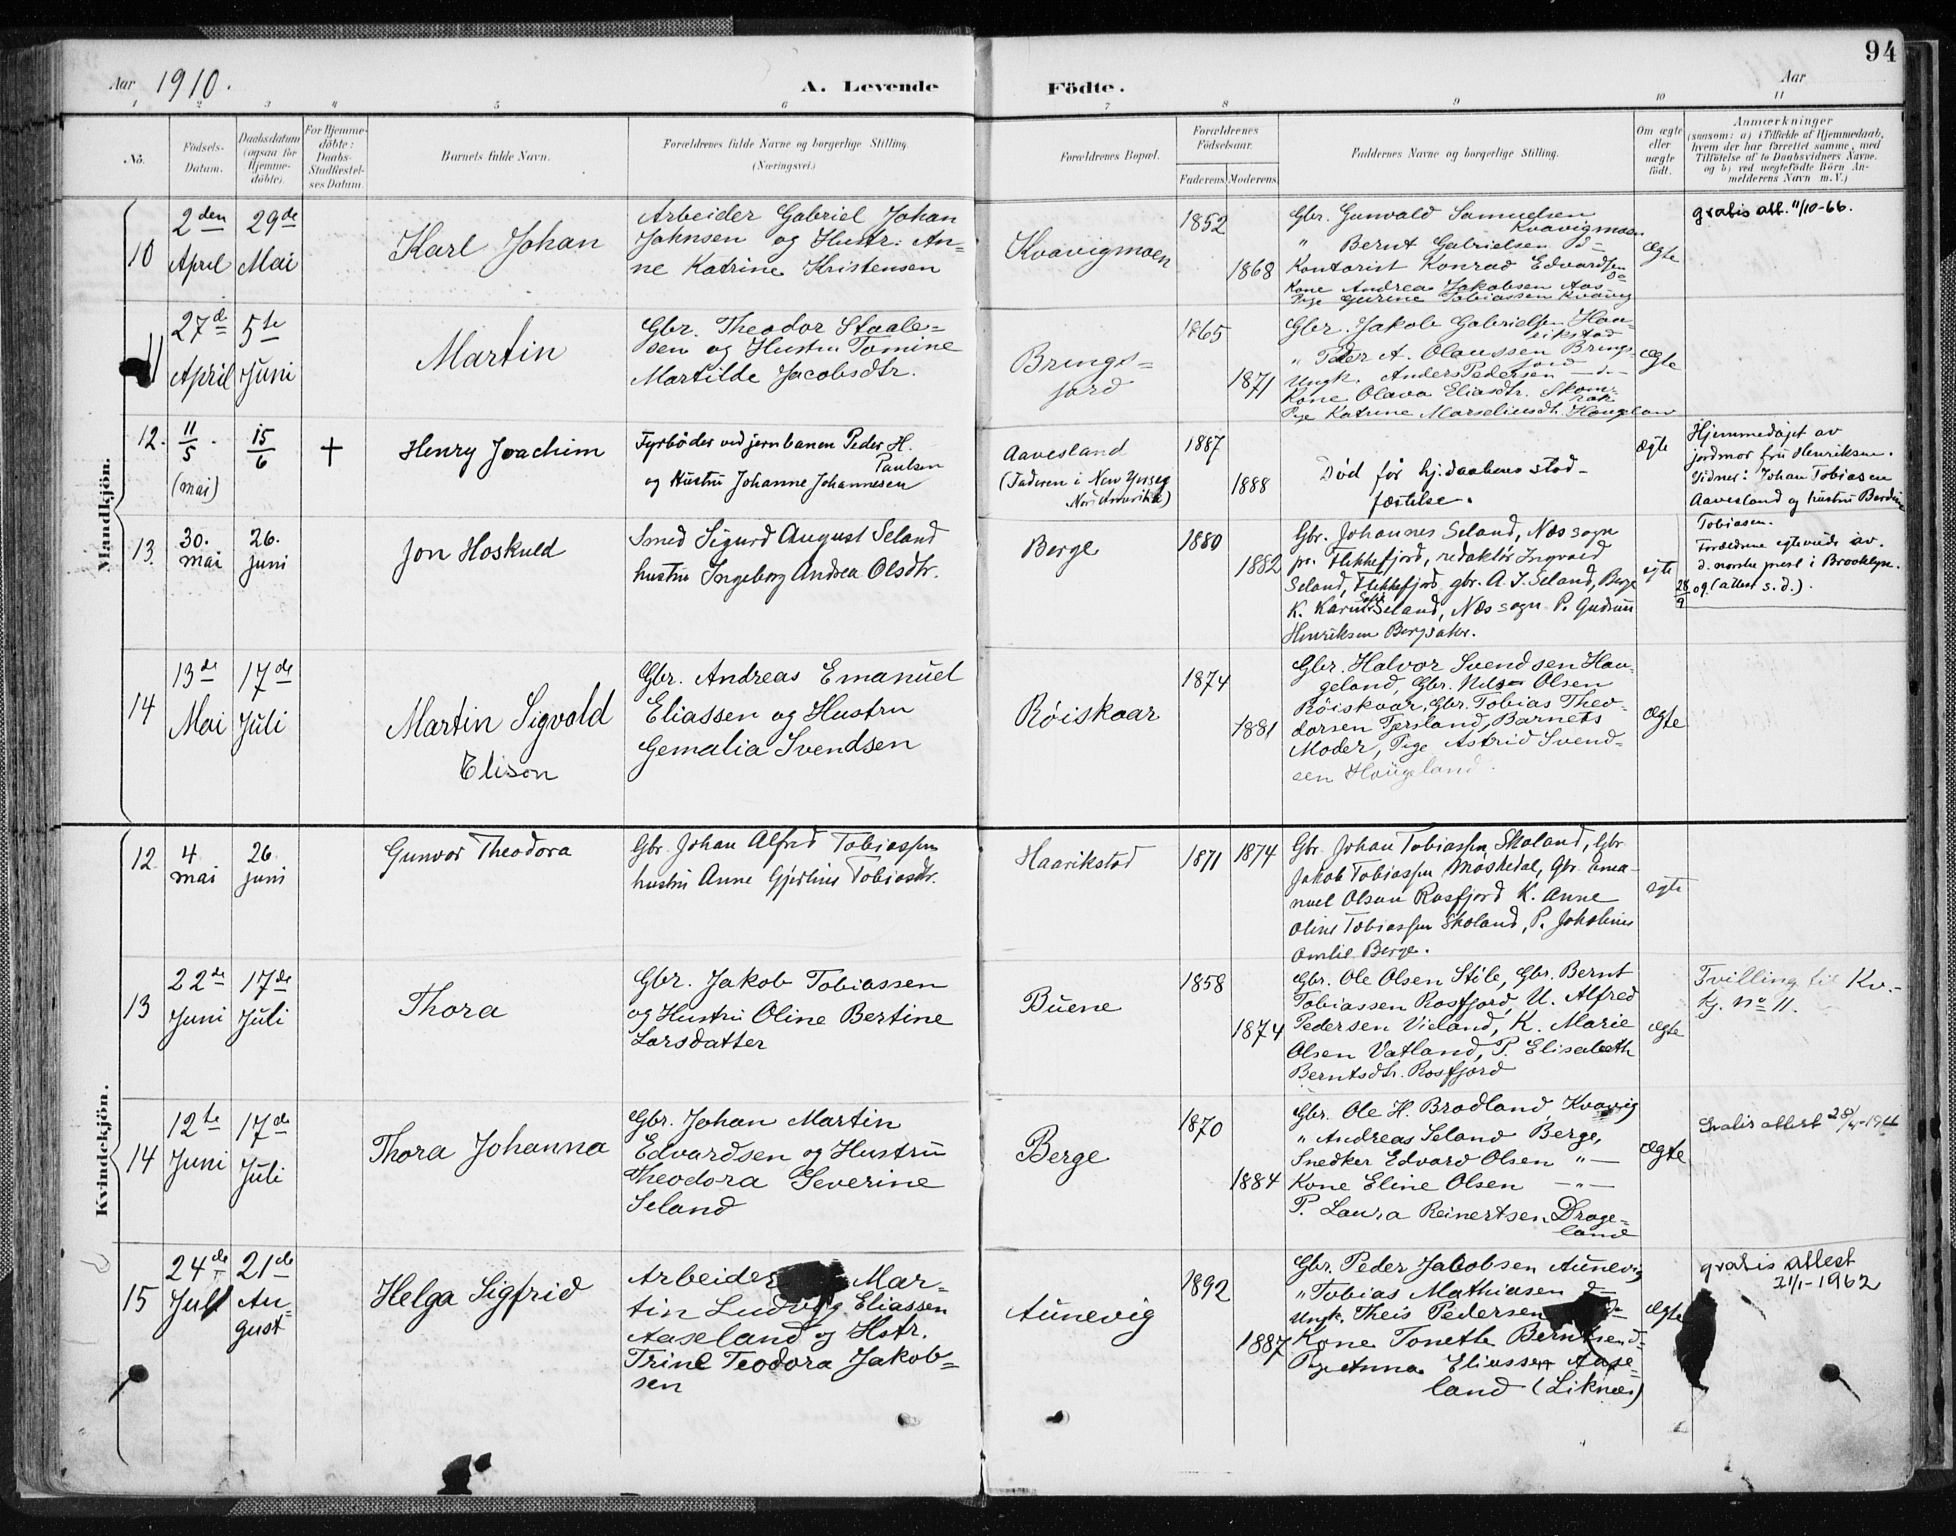 94
Aar 1910. A. Levende Födte. Aar
1 2 3 4 5 6 7 8 9 10 11
No. Födsels-Datum. Daabsdatum (ogsaa for Hjemme-döbte). For Hjemme-döbte: Daabs-Stadfæstel-ses Datum. Barnets fulde Navn. Forældrenes fulde Navne og borgerlige Stilling. (Næringsvei.) Forældrenes Bopæl. Forældrenes Födselsaar. Faderens Moderens Faddernes Navne og borgerlige Stilling. Om ægte eller uægte födt. Anmærkninger
(saasom: a) i Tilfælde af Hjemmedaab, hvem der har forrettet samme, med Tilföielse af to Daabsvidners Navne. og b) ved uægtefödte Börn An-melderens Navn m.V.)
Mandkjön.
10 2den April 29de Mai
Karl Johan
Arbeider Gabriel Johan
Johnsen og Hustr: An-
ne Katrine Kristensen
Kvavigmoen
1852
1868
Gbr. Gunvald Samuelsen
Kvavigmoen
" Bernt Gabrielsen d-
Kontorist Konrad Edvardsen
do
Kone Andrea Jakobsen Aas
Pige Gurine Tobiassen Kvavig
Ægte
gratis att. 11/10-66.
11 27de April 5te Juni
Martin
Gbr. Theodor Staale-
sen og Hustru Tomine
Martilde Jacobsdtr.
Brings-
jord
1865
1871
Gbr. Jakob Gabrielsen Haa-
rikstad
" Peder A. Olaussen Brings-
jord
Ungk. Anders Pedersen
Kone Olava Eliasdtr. Skom-
rak
Pige Katrine Marseliusdt. Haugland
Ægte
12. 11/5. (mai) 15/6 +
Henry Joachim
Fyrbøder ved jernbanen Peder H.
Paulsen
og Hustru Johanne Johannesen
Aavesland
(Faderen i New Yersey
Nord Amerika)
1887
1888
Død før hj.daabens stad-
fæstelse.
ægte
Hjemmedøpt av
jordmor fru Henriksen.
Vidner: Johan Tobiasen
Aavesland og hustru Berdine
Tobiasen.
Forældrene egteviede av
d. norske prest i Brooklyn.
28/9 09. (attest s.d.).
13. 30. mai 26. juni
Jon Hoskuld
Smed Sigurd August Seland
hustru Ingeborg Andrea Olsdtr.
Berge
1880
1882
Gbr. Johannes Seland, Næs sogn
pr. Flekkefjord, redaktør Ingvald
Seland, Flekkefjord, gbr. A. J. Seland, Berge
K. Karine Sofie Seland, Næs sogn P. Gudrun
Henriksen Bergsaker.
egte
14 13de Mai 17de Juli
Martin Sigvald
Elison
Gbr. Andreas Emanuel
Eliassen og Hustru
Gemalia Svendsen
Røiskaar
1874
1881
Gbr. Halvor Svendsen Hau-
geland, Gbr. Nils Olsen
Røiskaar, Gbr. Tobias Theo-
dorsen Tjersland, Barnets
Moder, Pige Astrid Svend-
sen Haugeland.
Ægte
Kvindekjön.
12. 4 mai 26 juni
Gunvor Theodora
Gbr. Johan Alfred Tobiassen
hustru Anne Gjertine Tobiasdtr.
Haarikstad
1871 1874
Gbr. Johan Tobiassen Skoland, Gbr
Jakob Tobiassen Møskedal, Gbr. Ema-
nuel Olsen Rosfjord K. Anne
Oline Tobiassen Skoland, P. Jakobine
Amlie Berge.
egte
13 22de Juni 17de Juli
Thora
Gbr. Jakob Tobiassen
og Hustru Oline Bertine
Larsdatter
Buene
1858
1874
Gbr. Ole Olsen Stile, Gbr. Bernt
Tobiassen Rosfjord, U. Alfred
Pedersen Vieland, K. Marie
Olsen Vatland, P. Elisabeth
Berntsdtr. Rosfjord
Ægte
Tvilling til Kv.-
kj. No 11.
14 12te Juni 17de Juli
Thora Johanna
Gbr. Johan Martin
Edvardsen og Hustru
Theodora Severine
Seland
Berge
1870
1884
Gbr. Ole H. Bradland, Kvavig
" Andreas Seland Berge,
Snedker Edvard Olsen "
Kone Eline Olsen - " -
P. Laura Reinertsen Drage-
land
Ægte
15 24de Juli 21de August
Helga Sigfrid
Arbeider Mar-
tin Ludvig Eliassen
Aaseland og Hstr.
Trine Teodora Jakob-
sen
Aunevig
1892
1887
Gbr. Peder Jacobsen Aunevig
" Tobias Mathiasen d-
Ungk. Theis Pedersen
Kone Tonette Berntsen d-
Pige Anna Eliassen Aase-
land (Liknes)
Ægte
gratis attest
21/1-1962